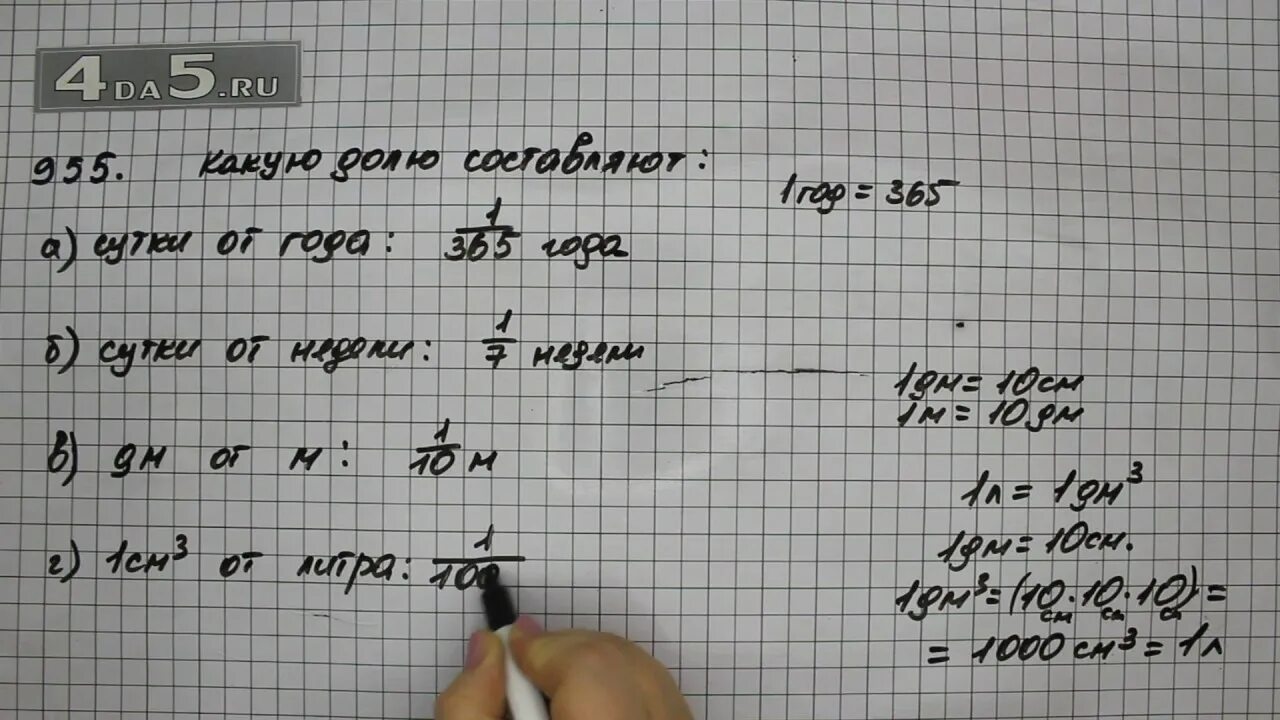 4DA5.RU
955. Какую долю составляют:
1 год = 365
а) сутки от года: 1/365 года
б) сутки от недели: 1/7 недели
1дм = 10см
1м = 10дм
в) дм от м: 1/10 м
1л = 1дм³
г) 1см³ от литра: 1/100
1дм = 10см.
1дм³ = (10см · 10см · 10см) =
= 1000 см³ = 1л